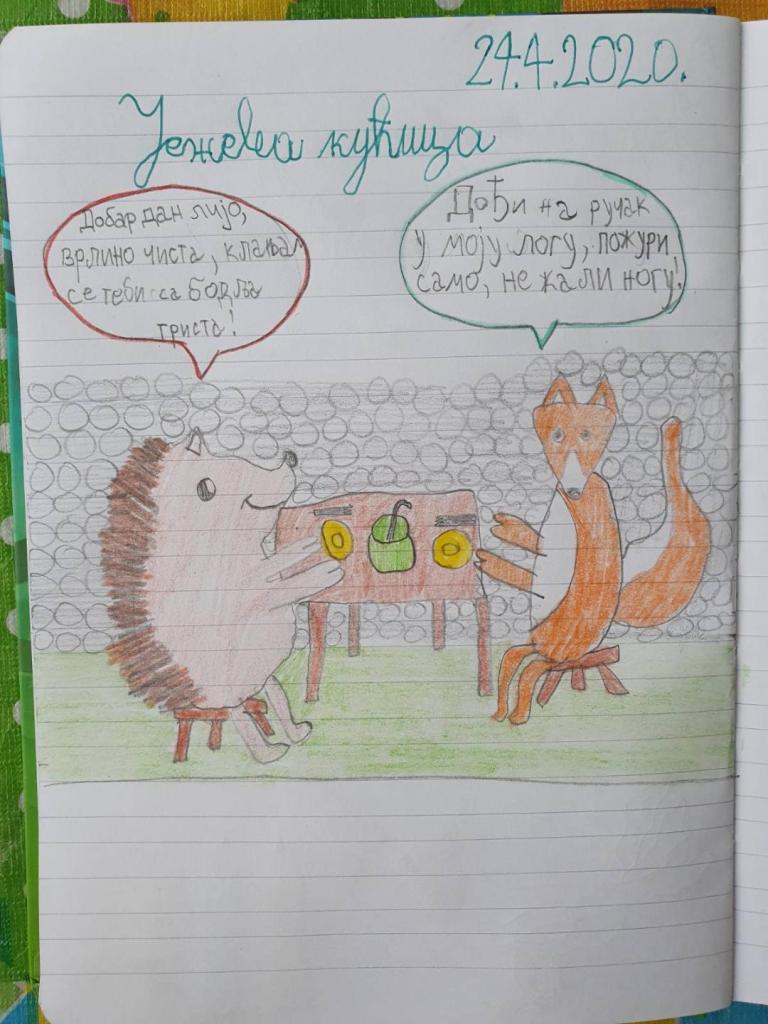 24.4.2020.
Јежева кућица
Добар дан лијо,
врлино чиста, клањам
се теби са бодља
триста!
Дођи на ручак
у моју логу, пожури,
само, не жали ногу!